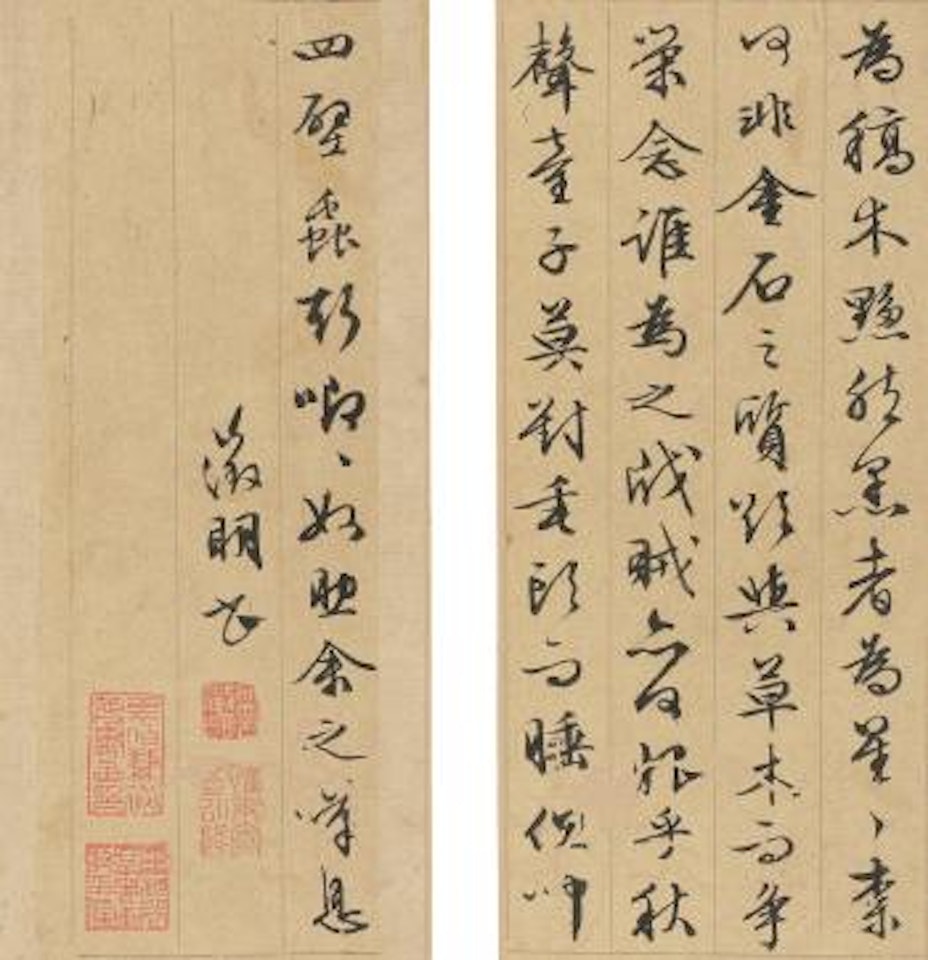 為稿木黟然黑者為星〻奈
何非金石之質欲與草木而爭
榮念誰為之戕賊亦何恨乎秋
聲童子莫對垂頭而睡但聞
四壁蟲聲唧〻如助余之嘆息
徵明書